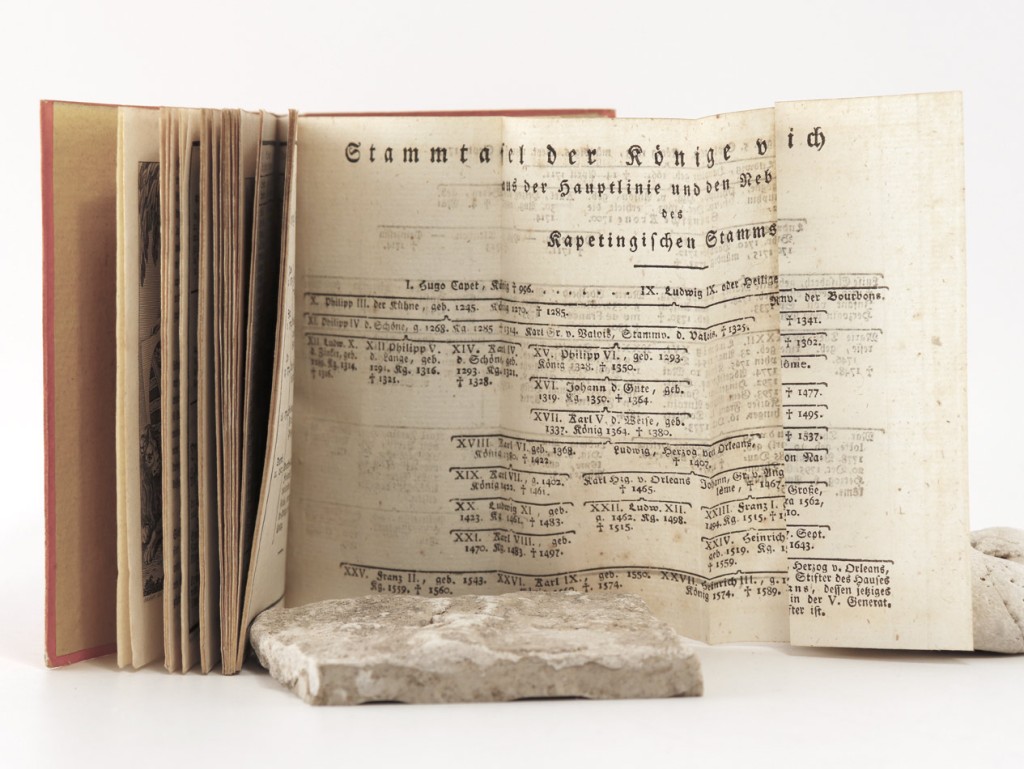 Stammtafel der Könige v ich
aus der Hauptlinie und den Neb
des
Kapetingischen Stamms
I. Hugo Capet, König † 996. . . . . . . IX. Ludwig IX. oder Heilige
X. Philipp III. der Kühne, geb. 1245. König 1270. † 1285. mv. der Bourbons.
XI. Philipp IV d. Schöne, g. 1268. Kg. 1285 † 1314. Karl Gr. v. Valois, Stammv. d. Valois. † 1325. † 1341.
XII. Ludw. X. XIII Philipp V. XIV. Karl IV. XV. Philipp VI., geb. 1293. † 1362.
d. Zänker, geb. d. Lange, geb. d. Schöne, geb. König 1328. † 1350.
1289. Kg. 1314. 1291. Kg. 1316. 1293. Kg. 1321. lôme.
† 1316. † 1321. † 1328.
XVI. Johann d. Gute, geb.
1319. Kg. 1350. † 1364. † 1477.
XVII. Karl V. d. Weise, geb. † 1495.
1337. König 1364. † 1380. † 1537.
XVIII. Karl VI. geb. 1368. Ludwig, Herzog von Orleans, on Na-
König 1380. † 1422. † 1407.
XIX. Karl VII., g. 1402. Karl Hzg. v. Orleans Johann, Gr. v. Ang
König 1422. † 1461. † 1465. lême, † 1467.
XX. Ludwig XI. geb. XXII. Ludw. XII. XXIII. Franz I. Große,
1423. Kg. 1461. † 1483. g. 1462. Kg. 1498. 1494. Kg. 1515. † 1 ra 1562,
† 1515. 10.
XXI. Karl VIII., geb. XXIV. Heinrich 7. Sept.
1470. Kg. 1483. † 1497. geb. 1519. Kg. 1 1643.
† 1559.
XXV. Franz II., geb. 1543. XXVI. Karl IX., geb. 1550. XXVII. Heinrich III., g. 1 Herzog v. Orleans,
Kg. 1559. † 1560. † 1574. König 1574. † 1589. Stifter des Hauses
ans, dessen jetziges
in der V. Generat.
fter ist.